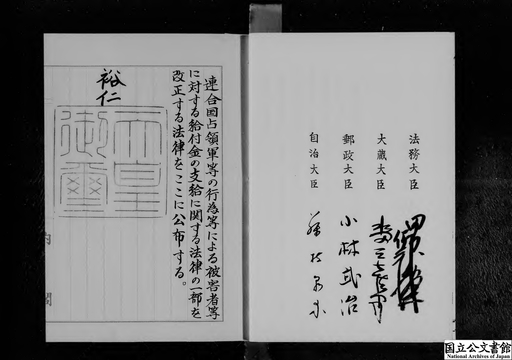 法務大臣
大蔵大臣
郵政大臣 小林武治
自治大臣
連合国占領軍等の行為等による被害者等
に対する給付金の支給に関する法律の一部を
改正する法律をここに公布する。
裕仁
天皇
御璽
内閣
国立公文書館
National Archives of Japan